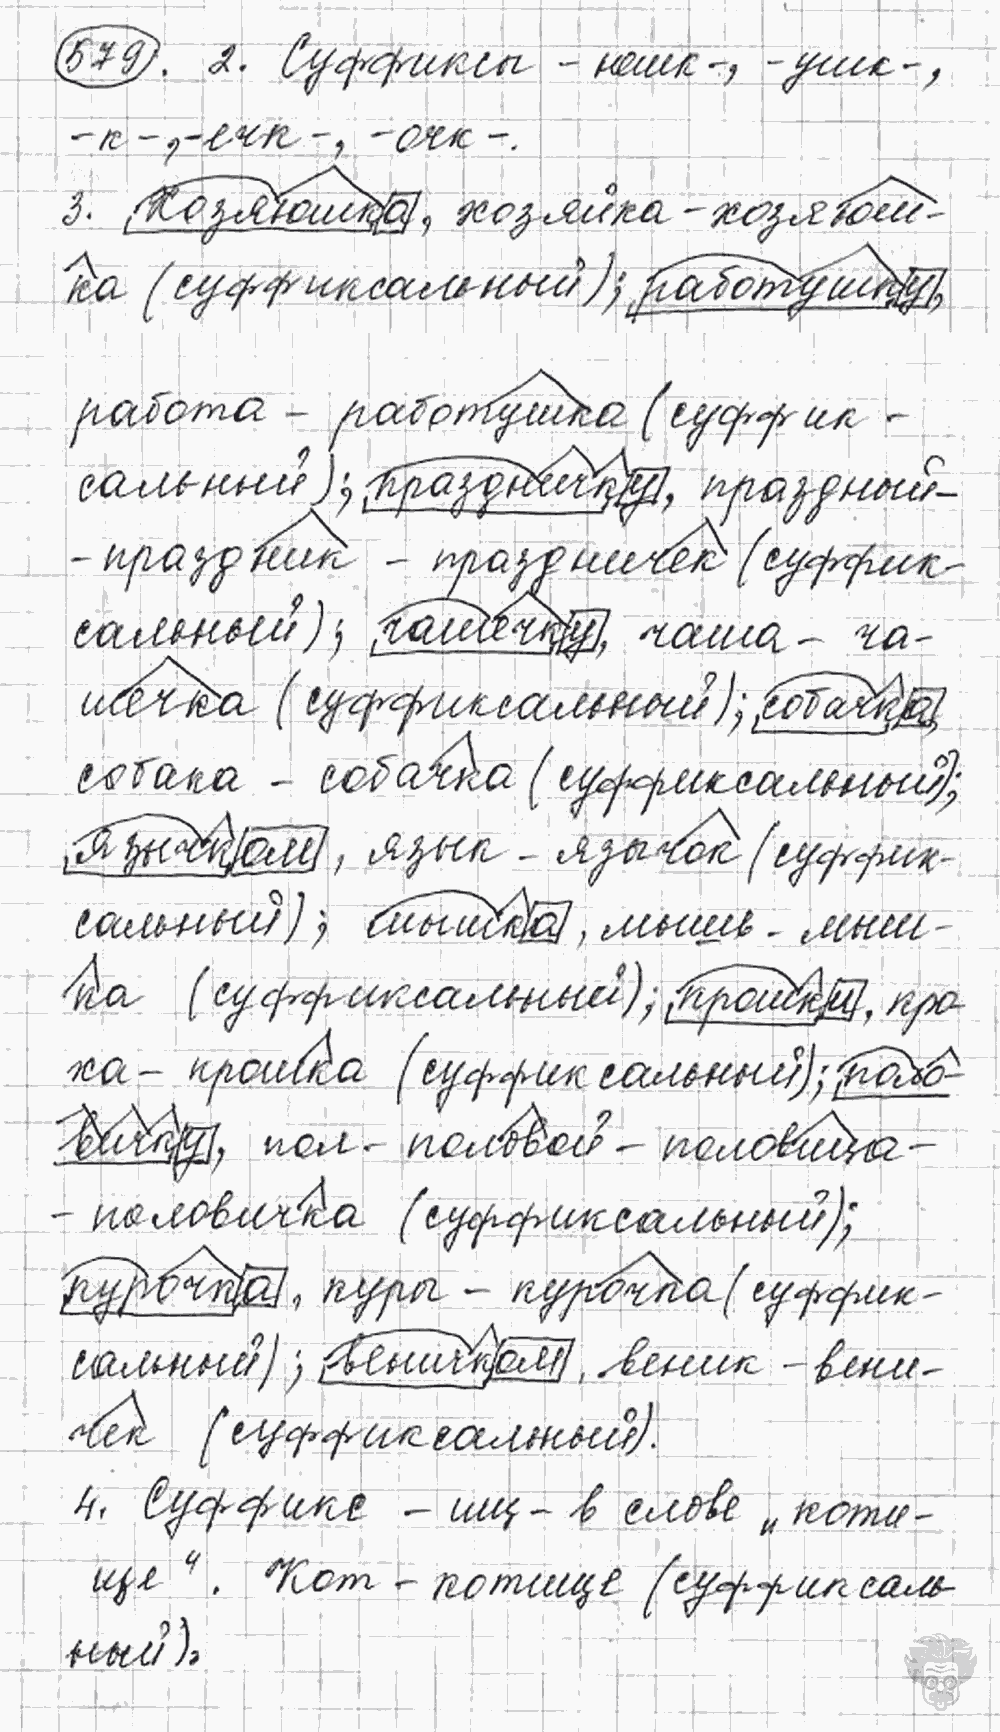 579. 2. Суффиксы -юшк-, -ушк-,
-к-, -ечк-, -очк-.
3. Хозяюшка, хозяйка - хозяюш-
ка (суффиксальный); работушку,
работа - работушка (суффик-
сальный); праздничку, праздный-
- праздник - праздничек (суффик-
сальный); чашечку, чаша - ча-
шечка (суффиксальный); собачка,
собака - собачка (суффиксальный);
язычком, язык - язычок (суффик-
сальный); мышка, мышь - мыш-
ка (суффиксальный); крошки, кро-
ха - крошка (суффиксальный); поло-
вичку, пол - половой - половица -
- половичка (суффиксальный);
курочка, куры - курочка (суффик-
сальный); веничком, веник - вени-
чек (суффиксальный).
4. Суффикс -ищ- в слове „коти-
ще“. Кот - котище (суффиксаль
ный).